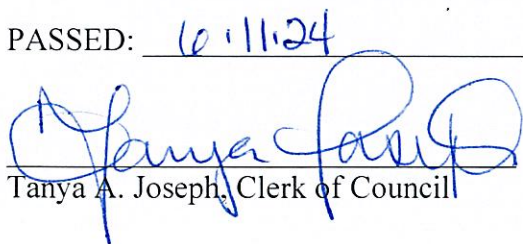 PASSED: 6.11.24
Tanya Joseph
Tanya A. Joseph, Clerk of Council